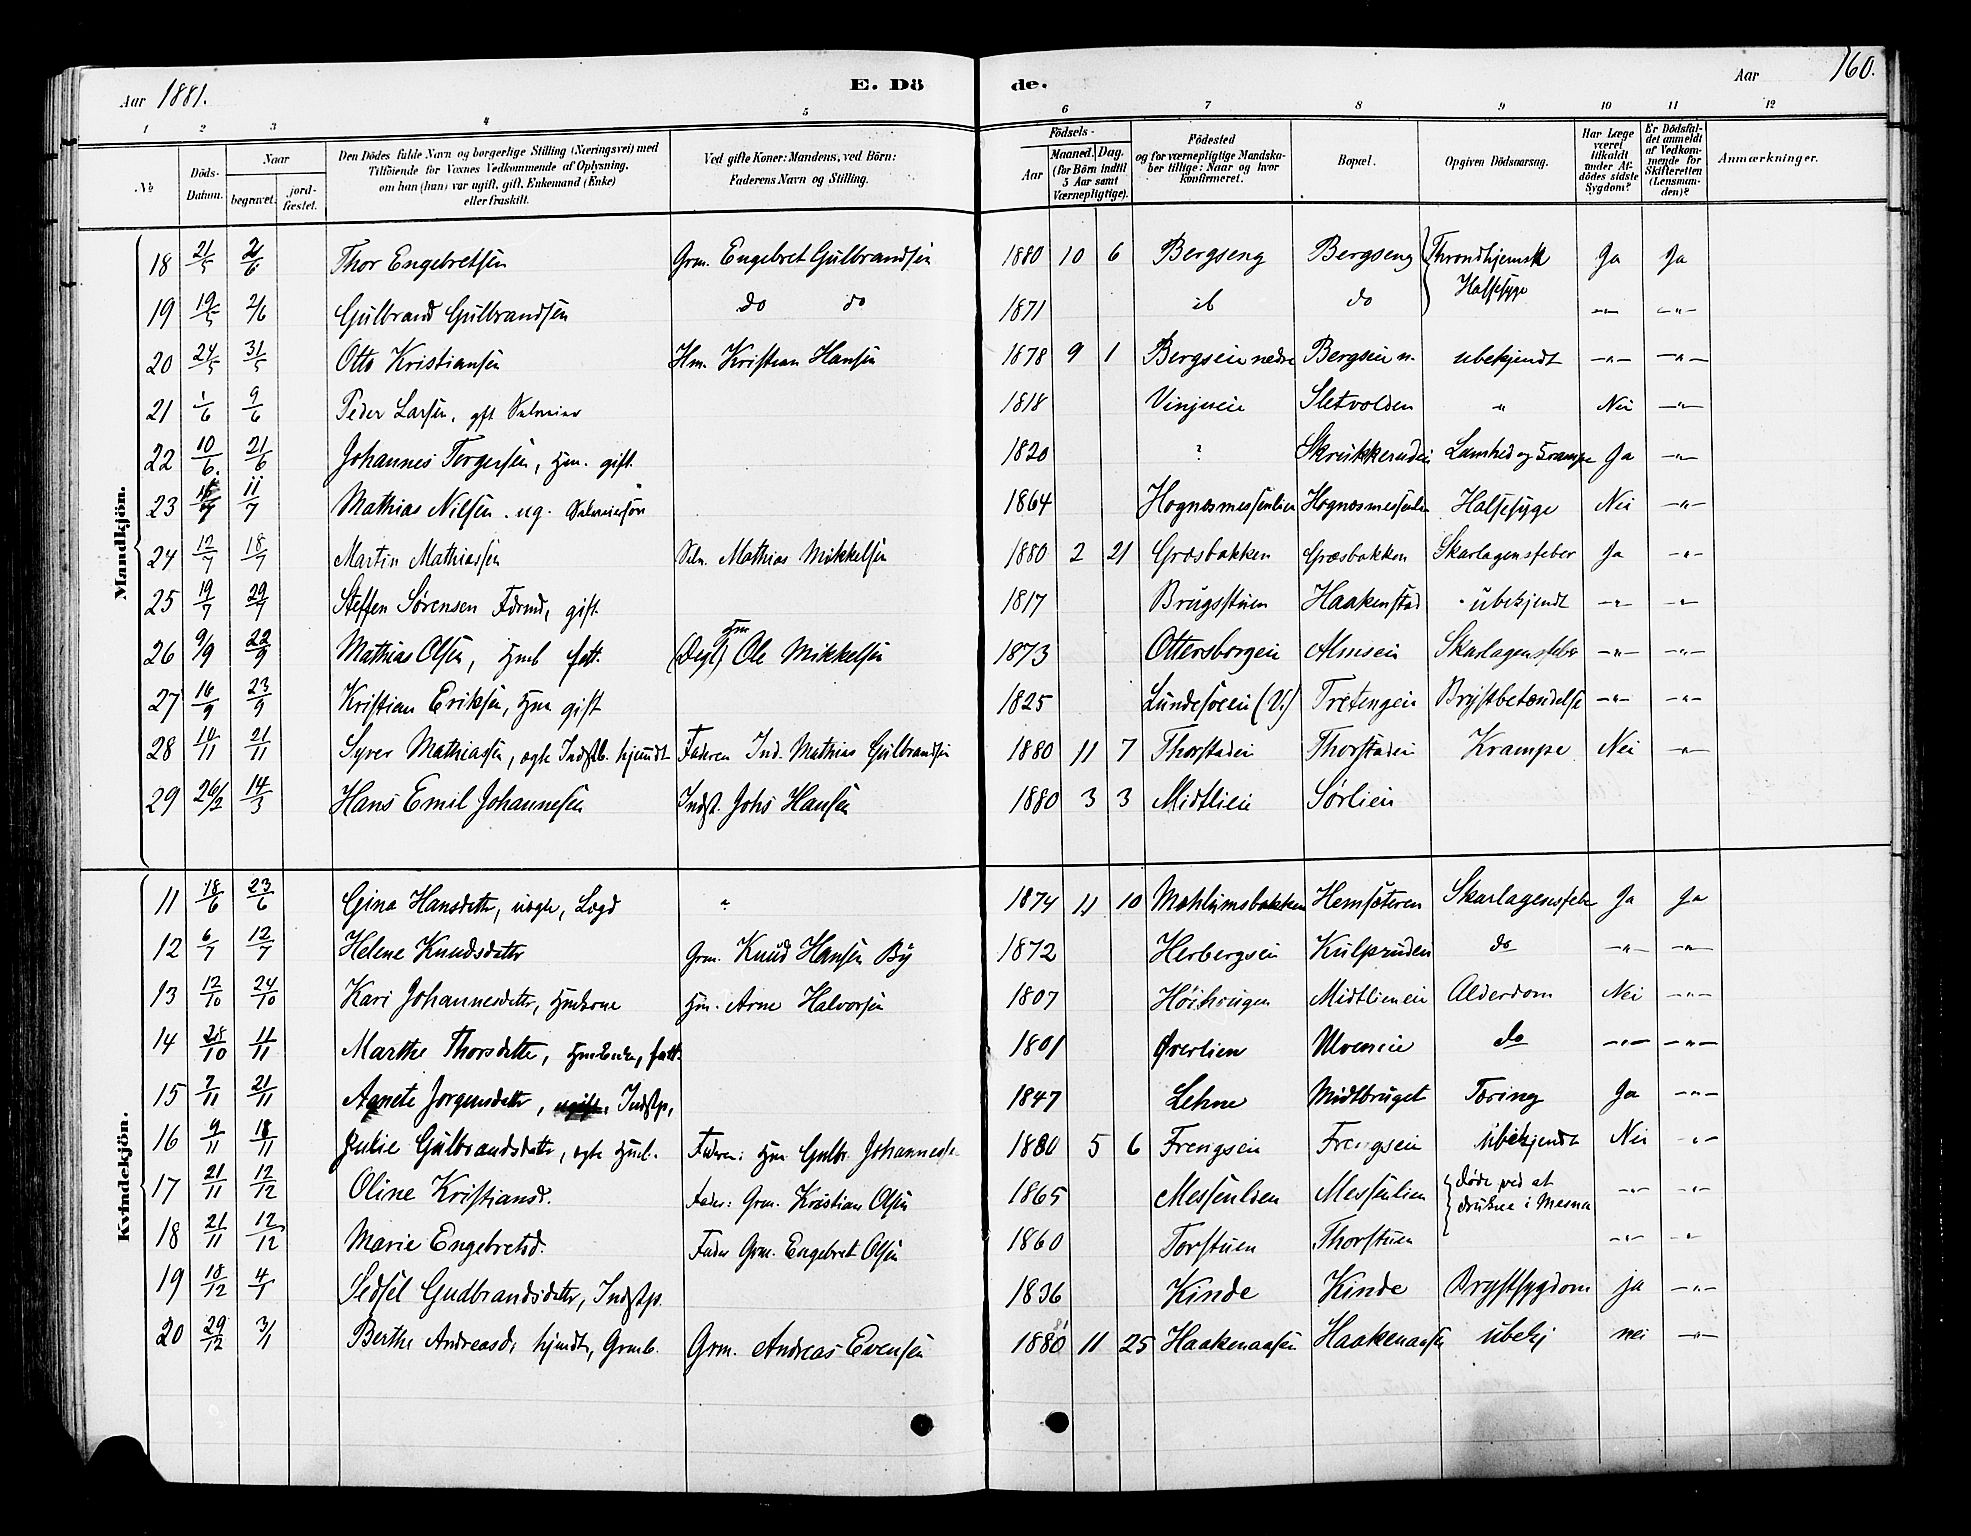 Aar 1881.
E. Dö
de.
Aar
160.
1 2 3 4 5 6 7 8 9 10 11 12
№
Döds-Datum.
Naar
begravet.
jord-fæstet.
Den Dödes fulde Navn og borgerlige Stilling (Næringsvei) med
Tilföiende for Voxnes Vedkommende af Oplysning,
om han (hun) var ugift, gift, Enkemand (Enke)
eller fraskilt.
Ved gifte Koner: Mandens, ved Börn:
Faderens Navn og Stilling.
Födsels-
Aar
Maaned. Dag.
(for Börn indtil
5 Aar samt
Værnepligtige).
Födested
og for værnepligtige Mandska-
ber tillige: Naar og hvor
konfirmeret.
Bopæl.
Opgiven Dödsaarsag.
Har Læge
været
tilkaldt
under Af-
dödes sidste
Sygdom?
Er Dödsfal-
det anmeldt
af Vedkom-
mende for
Skifteretten
(Lensman-
den)?
Anmærkninger.
Mandkjön.
18 21/5 2/6 Thor Engebretsen Grm. Engebret Gulbrandsen 1880 10 6 Bergseng Bergseng Throndhjemsk Halssyge Ja Ja
19 19/5 2/6 Gulbrand Gulbrandsen do do 1871 ib do -"- -"-
20 24/5 31/5 Otto Kristiansen Hm. Kristian Hansen 1878 9 1 Bergseie nedre Bergseie n. ubekjendt -"- -"-
21 1/6 9/6 Peder Larsen, gft Selveier 1818 Vinjueie Sletvolden " Nei -"-
22 10/6. 21/6 Johannes Torgersen, Hm. gift. 1820 ? Skrukkerudeie Lamhed og Krampe Ja -"-
23 11/7 Mathias Nilsen. ug. Selveiersøn 1864 Hognæsmessenlien Hognæsmessenlien Halssyge Nei -"-
24 12/7 18/7 Martin Mathiassen Selv. Mathias Mikkelsen 1880 2 21 Græsbakken Græsbakken Skarlagensfeber Ja -"-
25 19/7 29/7 Steffen Sørensen gift. 1817 Brugsstuen Haakenstad ubekjendt -"- -"-
26 9/9 22/9 Mathias Olsen, Hmb fatt. Hm Ole Mikkelsen 1873 Ottersborgeie Almseie Skarlagensfeber -"- -"-
27 16/9 23/9 Kristian Eriksen, Hm gift 1825 Lundesveen (V.) Tretengeie Brystbetændelse -"- -"-
28 10/11 21/11 Syver Mathiassen, ægte Indstb. hjemdt Faderen Ind. Mathias Gulbrandsen 1880 11 7 Thorstadeie Thorstadeie Krampe Nei -"-
29 26/2 14/3 Hans Emil Johannesen Indst. Johs Hansen 1880 3 3 Midtlieie Sørlien
Kvindekjön.
11 18/6 23/6 Gina Hansdatter, uægte, Lægd " 1874 11 10 Mæhlumsbakken Hemsæteren Skarlagensfeber Ja Ja
12 6/7 12/7 Helene Knudsdatter Grm. Knud Hansen By 1872 Herbergseie Kulpruden do -"- -"-
13 12/10 24/10 Kari Johannesdatter, Hmkone Hm. Arne Halvorsen 1807 Høihaugen Midtlieneie Alderdom Nei -"-
14 28/10 11/11 Marthe Thorsdatter, Hmenke, fatt. 1801 Øverlien Ulveneie do -"- -"-
15 7/11 21/11 Agnete Jørgensdatter, ugift. Indstp. 1847 Lehne Midtbruget Tæring Ja -"-
16 9/11 11/11 Julie Gulbrandsdatter, ægte Hmb. Faderen: Hm Gulbr. Johannessen 1880 5 6 Frengseie Frengseie ubekjendt Nei -"-
17 21/11 12/12 Oline Kristiansd. Fader: Grm. Kristian Olsen 1865 Messenlien Messenlien døde ved at drukne i Mesna -"- -"-
18 21/11 12/12 Marie Engebretsd. Fader Grm. Engebret Olsen 1860 Torstuen Thorstuen -"- -"-
19 18/12 4/1 Sidsel Gudbrandsdatter, Indstp. 1836 Kinde Kinde Brystsygdom ja -"-
20 29/12 3/1 Berthe Andreasd. hjemdt, Grmb. Grm. Andreas Evensen 1880 11 25 Haakenaasen Haakenaasen ubekj nei -"-